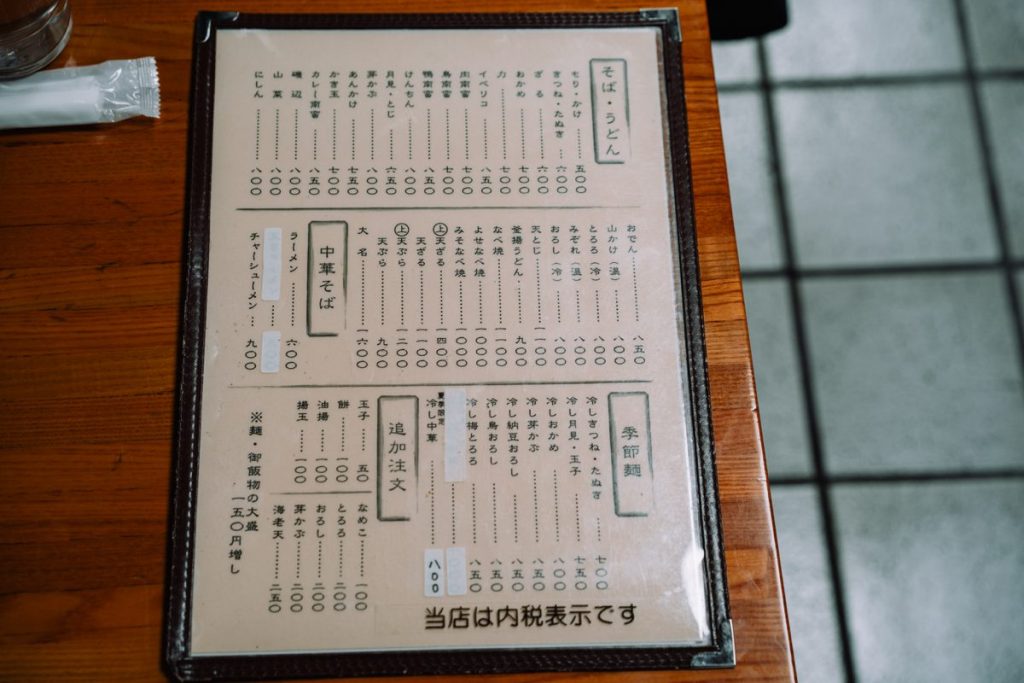 そば・うどん
せり・かけ 五〇〇
きつね・たぬき 六〇〇
ざる 六〇〇
おかめ 七〇〇
力 七〇〇
イベリコ 八五〇
肉南蛮 七〇〇
鳥南蛮 七〇〇
鴨南蛮 八五〇
けんちん 八〇〇
月見・とじ 六五〇
芽かぶ 八〇〇
あんかけ 七五〇
かき玉 七〇〇
カレー南蛮 八五〇
磯辺 八〇〇
山菜 八〇〇
にしん 八〇〇
おでん 八五〇
山かけ(温) 八〇〇
とろろ(冷) 八〇〇
みぞれ(温) 八〇〇
おろし(冷) 八〇〇
天とじ 一一〇〇
釜揚うどん 九〇〇
なべ焼 一一〇〇
よせなべ焼 一〇〇〇
みそなべ焼 一〇〇〇
㊤天ざる 一四〇〇
天ざる 一一〇〇
㊤天ぷら 一二〇〇
天ぷら 九〇〇
大名 一六〇〇
中華そば
ラーメン 六〇〇
チャーシューメン 九〇〇
季節麺
冷しきつね・たぬき 七〇〇
冷し月見・玉子 七五〇
冷しおかめ 八〇〇
冷し芽かぶ 八五〇
冷し納豆おろし 八五〇
冷し鳥おろし 八五〇
冷し梅とろろ 八五〇
夏季限定
冷し中華 八〇〇
追加注文
玉子 五〇
餅 一〇〇
油揚 一〇〇
揚玉 一〇〇
なめこ 一〇〇
とろろ 二〇〇
おろし 二〇〇
芽かぶ 二〇〇
海老天 二五〇
※麺・御飯物の大盛
一五〇円増し
当店は内税表示です